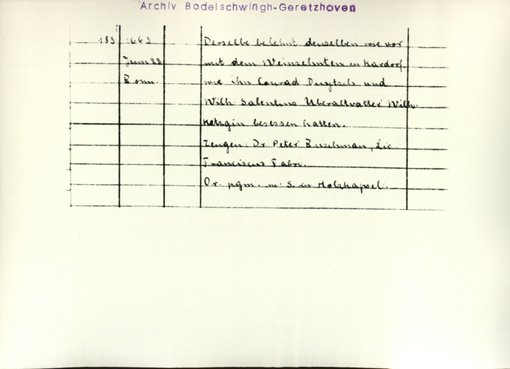 Archiv Bodelschwingh-Geretzhoven
183 663 Derselbe belehnt denselben wie vor
Juni 23 mit dem Weinzehnten in Kardorf,
Bonn. wie ihn Conrad und
Wilh. Salentins Uberaltvatter Wilh.
besessen hatten.
Zeugen: Dr. Peter Buschman, Lic.
Franciscus Fabri.
Or. pgm. m. S. in Holzkapsel.